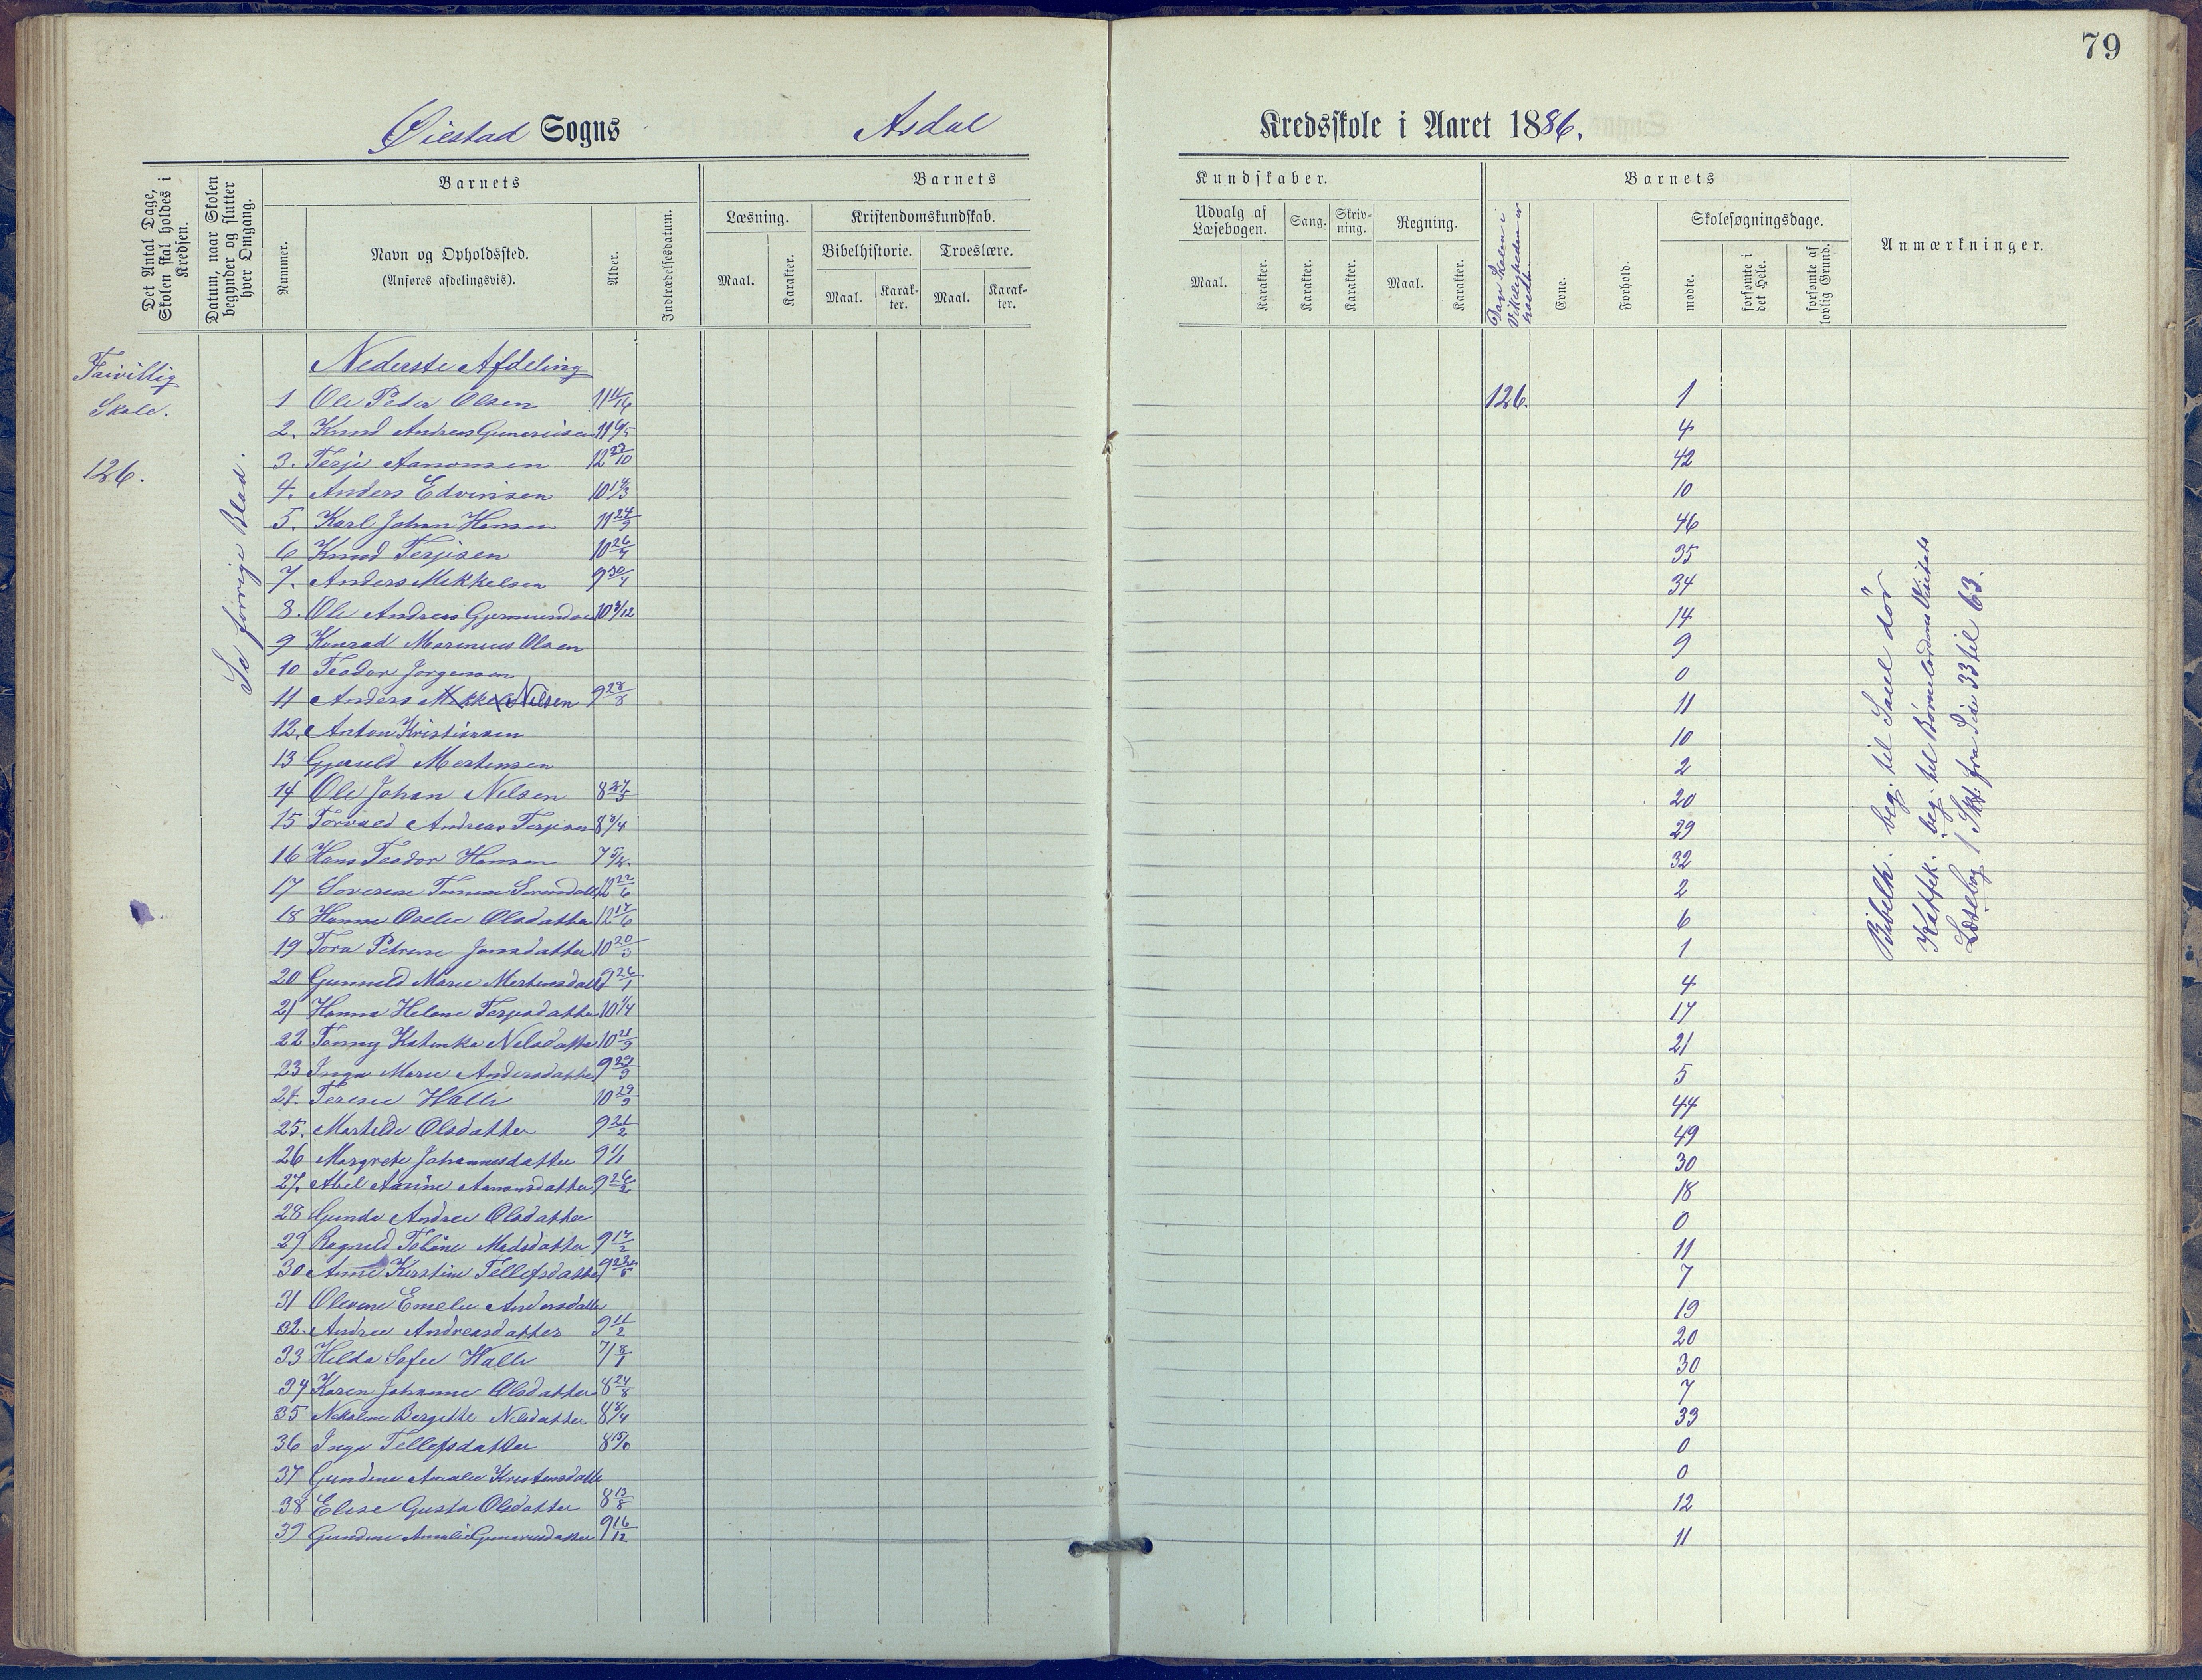 79
Øiestad Sogns Asdal Kredsskole i Aaret 1886.
Det Antal Dage, Skolen skal holdes i Kredsen.
Datum, naar Skolen begynder og slutter hver Omgang.
Barnets
Nummer.
Navn og Opholdssted.
(Anføres afdelingsvis).
Alder.
Indtrædelsesdatum.
Barnets Kundskaber.
Læsning.
Maal.
Karakter.
Kristendomskundskab.
Bibelhistorie.
Maal.
Karak-
ter.
Troeslære.
Maal.
Karak-
ter.
Udvalg af
Læsebogen.
Maal.
Karakter.
Sang.
Karakter.
Skriv-
ning.
Karakter.
Regning.
Maal.
Karakter.
Dage Skolen i
Virkeligheden er
holdt
Barnets
Evne.
Forhold.
Skolesøgningsdage.
mødte.
forsømte i
det Hele.
forsømte af
lovlig Grund.
Anmærkninger.
Frivillig
Skole.
126.
Se forrige Blad.
Nederste Afdeling
1 Ole Peter Olsen 11 126. 1
2. Knud Andreas Gunerius 11 4
3. Terje Aanonsen 12 22/10 42
4. Anders Edvinsen 10 10
5. Karl Johan Hansen 11 24/9 46
6 Knud Terjesen 10 26/4 35
7. Anders Mikkelsen 9 30/4 34
8. Ole Andreas Gjermundsen 10 3/12 14
9 Konrad Marinius Olsen 9
10 Teodor Jørgensen 0
11 Anders Nilsen 9 28/8 11
12. Anton Kristiansen 10
13 Gjeruld Mortensen 2
14 Ole Johan Nilsen 8 20
15 Torvald Andreas Terjesen 8 29
16 Hans Teodor Hansen 7 32
17 12 22/6 2
18 Hanna Olsdatter 12 17/6 6
19 Tora Petrine Jensdatter 10 20/3 1
20 Gunnild Marie Mortensdatt 9 26/1 4
21 Hanna Helene Terjesdatter 10 1/4 17
22 Tonny Katinka Nilsdatter 10 21
23 Inga Marie Andersdatter 9 5
24. Terese Walle 10 29/9 44
25. Martilde Olsdatter 9 21/2 49
26 Margrete Johannesdatter 9 1/1 30
27. Abel Aanonsdatter 9 26/2 18
28 Gunda Andrea Olsdatter 0
29 Ragnild Tobine Madsdatter 9 17/2 11
30 Anne Kirstine Tellefsdatter 9 7
31 Olevine Emelie Andersdatter 19
32. Andrea Andreasdatter 9 11/2 20
33 Hilda Sofie Walle 7 8/1 30
34 Karen Johanne Olsdatter 8 24/8 7
35 Nikoline Bergitte Nilsdatter 8 8/4 33
36 Inga Tellefsdatter 8 0
37 Gundine Amalie Kristensdatte 0
38 Elise Gusta Olsdatter 8 13/8 12
39 Gundine Amalie Guneriusdatter 9 16/12 11
Bibelh. beg. til Saul dør
Katek. beg. til
Læsebog 1 Skt. fra Side 33 til 63.